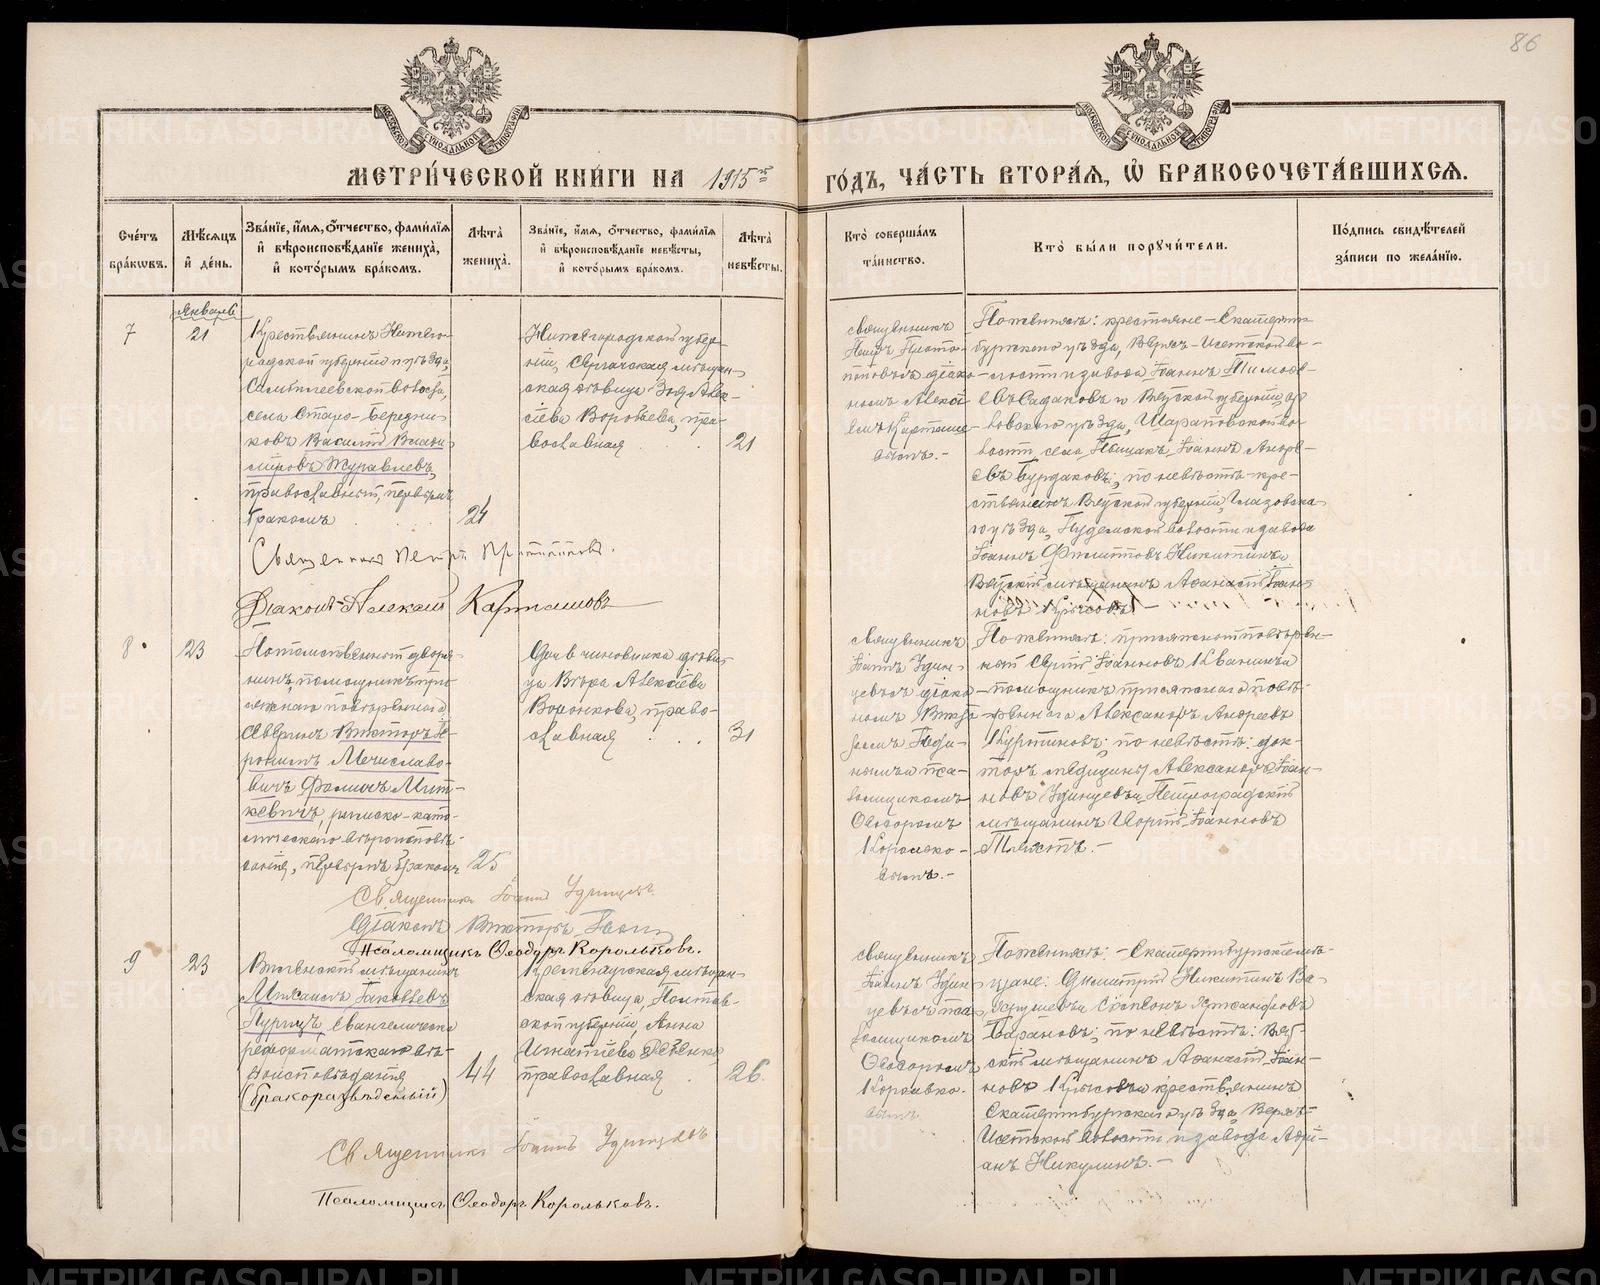 86
МЕТРИ́ЧЕСКОЙ КНИ́ГИ НА 1915й ГО́ДЪ, ЧА́СТЬ ВТОРА́Я, Ѡ БРАКОСОЧЕТА́ВШИХСЯ.
Сче́тъ бра́кωвъ.
Мѣ́сяцъ и де́нь.
Зва́нїе, и́мя, о́тчество, фами́лїя и вѣроисповѣ́данїе жениха̀, и кото́рымъ бра́комъ.
Лѣ́та жениха̀.
Зва́нїе, и́мя, о́тчество, фами́лїя и вѣроисповѣ́данїе невѣ́сты, и кото́рымъ бра́комъ.
Лѣ́та невѣ́сты.
Кто̀ соверша́лъ та́инство.
Кто̀ бы́ли порꙋчи́тели.
По́дпись свидѣ́телей за́писи по жела́нїю.
Январь
7
21
Крестьянинъ Нижего-
родской губерніи и уѣзда,
волости,
села Старо-
Василій Влади-
міровъ Журавлевъ,
православный, первымъ
бракомъ
24
Нижегородской губер-
ніи, Сергачская мѣщан-
ская дѣвица Зоя Алек-
сіева Воробьева, пра-
вославная
21
священникъ
Петръ
діако-
номъ Алексі-
емъ Карташе-
вымъ.-
По женихѣ: крестьяне - Екатерин-
бургскаго уѣзда, Верхъ-Исетской во-
лости и завода Іоаннъ Тимоѳе-
евъ Садаковъ и Вятской губерніи,
уѣзда, Шараповской во-
лости, села Іоаннъ Андре-
евъ Бурдаковъ; по невѣстѣ - кре-
стьянинъ Вятской губерніи, Глазовска-
го уѣзда, Пудемской волости и завода
Іоаннъ Филипповъ Никитинъ и
Вятскій мѣщанинъ Аѳанасій Іоан-
новъ Крысовъ
Священникъ Петръ
Діаконъ Алексій Карташовъ
8
23
Потомственный дворя-
нинъ, помощникъ при-
сяжнаго повѣреннаго
Викторъ-Іе-
ронимъ Мечиславо-
вичъ Мит-
кевичъ, римско-като-
лическаго вѣроисповѣ-
данія, первымъ бракомъ
25
Дочь чиновника дѣви-
ца Вѣра Алексіева
Воронкова, право-
славная
31
священникъ
Іоаннъ Удин-
цевъ съ діако-
номъ Викто-
ромъ
нымъ и пса-
ломщикомъ
Ѳеодоромъ
Королько-
вымъ.-
По женихѣ: присяжный повѣрен-
ный Сергій Іоанновъ
помощникъ присяжнаго повѣ-
реннаго Александръ Андреевъ
по невѣстѣ: док-
торъ медицины Александръ Іоан-
новъ Удинцевъ и Петроградскій
мѣщанинъ Георгій Іоанновъ
Священникъ Іоаннъ Удинцевъ
Діаконъ Викторъ
Псаломщикъ Ѳеодоръ Корольковъ.
9
23
Виленскій мѣщанинъ
Михаилъ Іаковлевъ
Пурицъ, Евангелическо
реформатскаго вѣ-
роисповѣданія
(бракоразведенный)
44
Кременчугская мѣщан-
ская дѣвица, Полтав-
ской губерніи, Анна
Игнатіева
православная
26.
священникъ
Іоаннъ Удин-
цевъ съ пса-
ломщикомъ
Ѳеодоромъ
Королько-
вымъ.
По женихѣ: - Екатеринбургскіе мѣ-
щане: Димитрій Никитинъ
и
Барановъ; по невѣстѣ: Вят-
скій мѣщанинъ Аѳанасій Іоан-
новъ Крысовъ и крестьянинъ
Екатеринбургскаго уѣзда, Верхъ-
Исетской волости и завода Адрі-
анъ Никулинъ.-
Священникъ Іоаннъ Удинцевъ
Псаломщикъ Ѳеодоръ Корольковъ.
METRIKI.GASO-URAL.RU